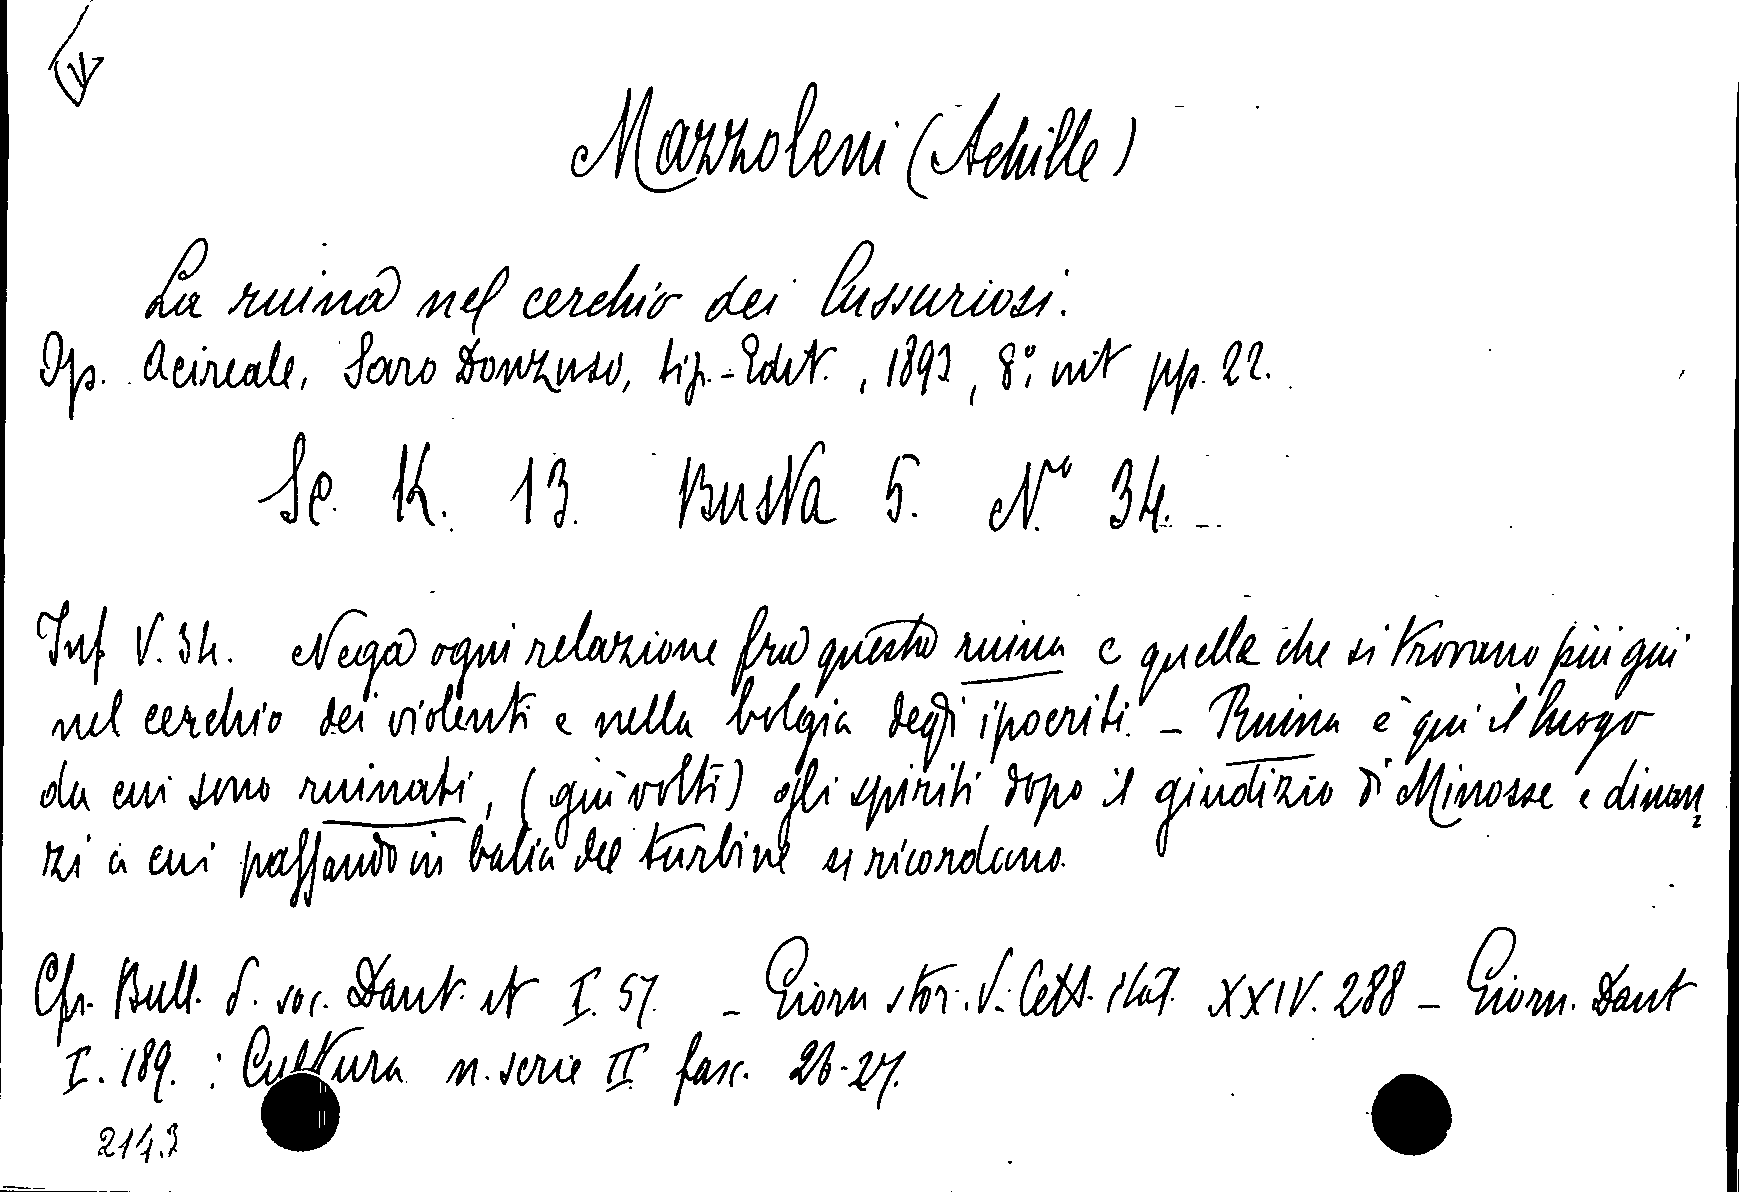 Mazzoleni (Achille)
La ruina nel cerchio dei lussuriosi.
Op. Acireale, Saro Donzuso, tip.-Edit., 1893, 8º. nit pp. 22.
Sc. K. 13. Busta 5. Nº 34.
Inf. V. 34. Nega ogni relazione fra questa ruina e quelle che si trovano più giù
nel cerchio dei violenti e nella bolgia degli ipocriti. - Ruina è qui il luogo
da cui sono ruinati, (giù volti) gli spiriti dopo il giudizio di Minosse e dinan
zi a cui passando in balìa del turbine si ricordano.
Cfr. Bull. d. soc. Dant. it I. 57. - Giorn stor. d. Lett. ital. XXIV. 288 - Giorn. Dant
I. 189. : Cultura n. serie II fasc. 26-27.